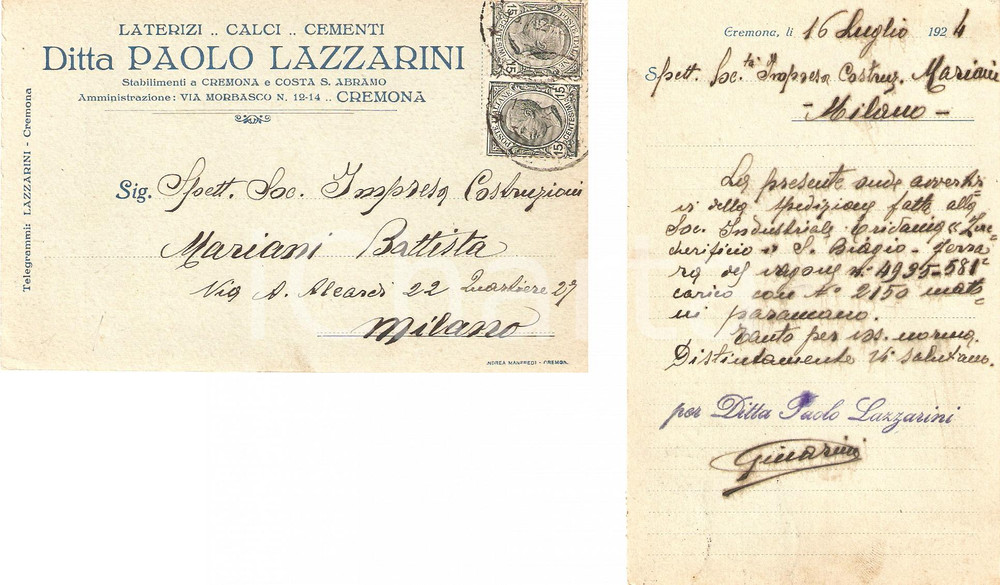 LATERIZI .. CALCI .. CEMENTI
Ditta PAOLO LAZZARINI
Stabilimenti a CREMONA e COSTA S. ABRAMO
Amministrazione: VIA MORBASCO N. 12-14 .. CREMONA
Telegrammi: LAZZARINI - Cremona
Sig. Spett. Soc. Impresa Costruzioni
Mariani Battista
Via A. Aleardi 22 Quartiere 27
Milano
ANDREA MANFREDI - CREMONA
POSTE ITALIANE
CENTESIMI 15
15
Cremona, li 16 Luglio 1924
Spett. Soc.tà Impresa Costruz. Mariani
- Milano -
La presente onde avvertir
vi della spedizione fatta alla
Soc. Industriale Eridania "Zuc=
cherificio" S. Biagio - Ferra
ra del vagone n° 4995-581
carico con N° 2150 mat=
ni paramano.
Tanto per vs. norma.
Distintamente Vi salutano.
per Ditta Paolo Lazzarini